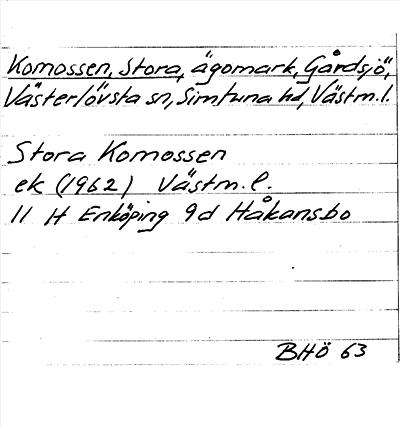 Komossen, Stora, ägomark, Gårdsjö,
Västerlövsta sn, Simtuna hd, Västm.l.
Stora Komossen
ek (1962) Västm.l.
11 H Enköping 9d Håkansbo
BHÖ 63